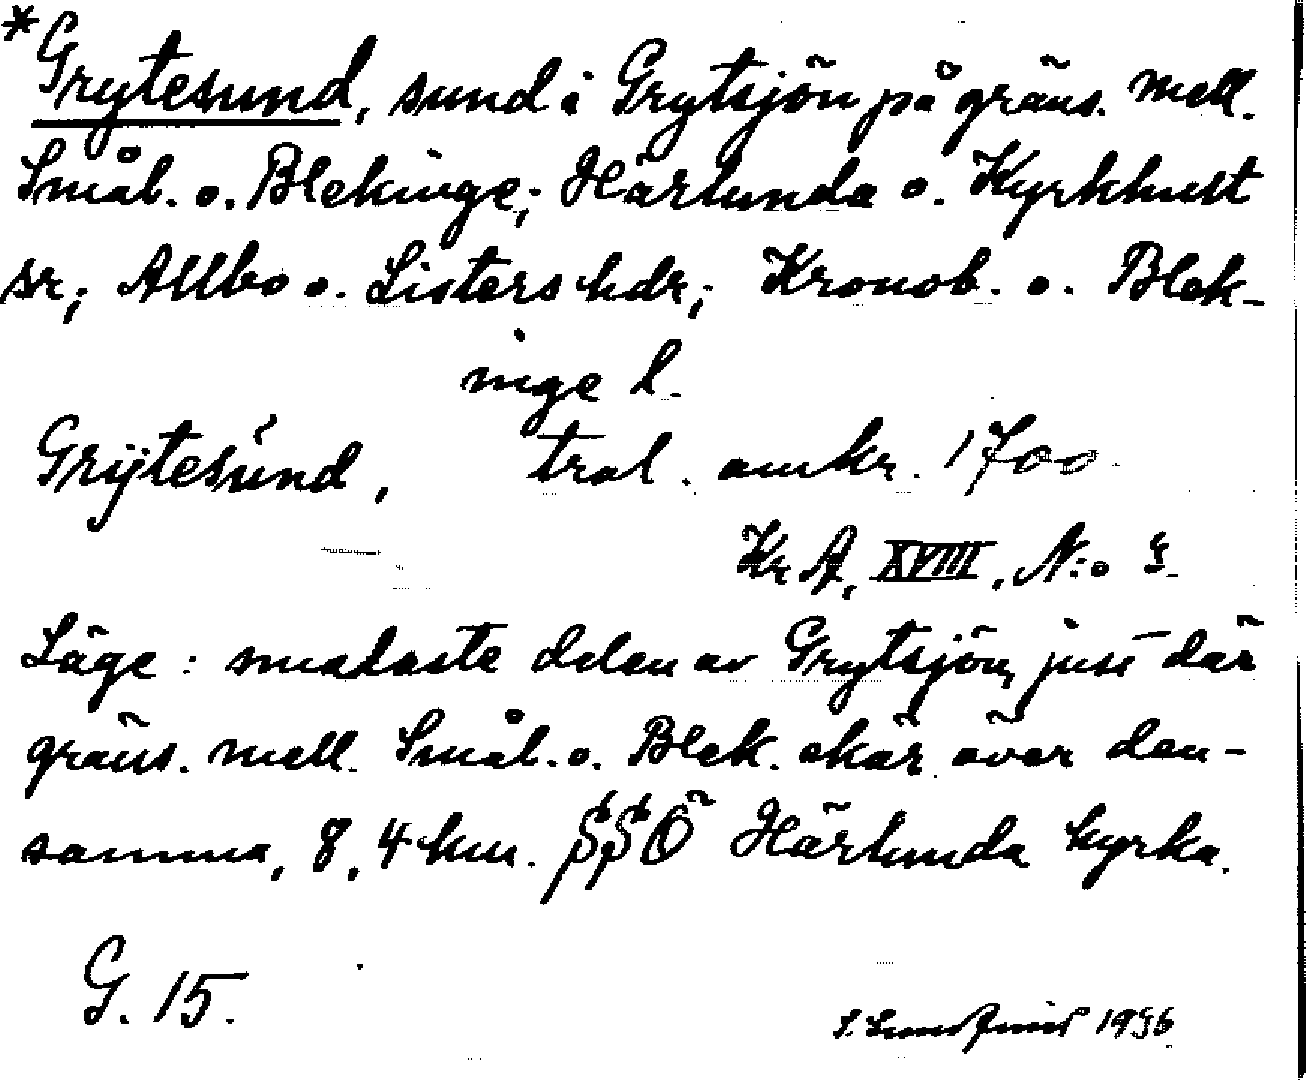 *Grytesund, sund i Grytsjön på gräns. mell.
Smål. o. Blekinge; Härlunda o. Kyrkhult
sr; Allbo o. Listers hdr; Kronob. o. Blek-
inge l.
Grÿtesund, tral. omkr. 1700
Kr A, XVIII, N:o
Läge: smalaste delen av Grytsjön, just där
gräns. mell. Smål. o. Blek. skär över den-
samma, 8,4 km. SSÖ Härlunda kyrka.
G. 15.
1936